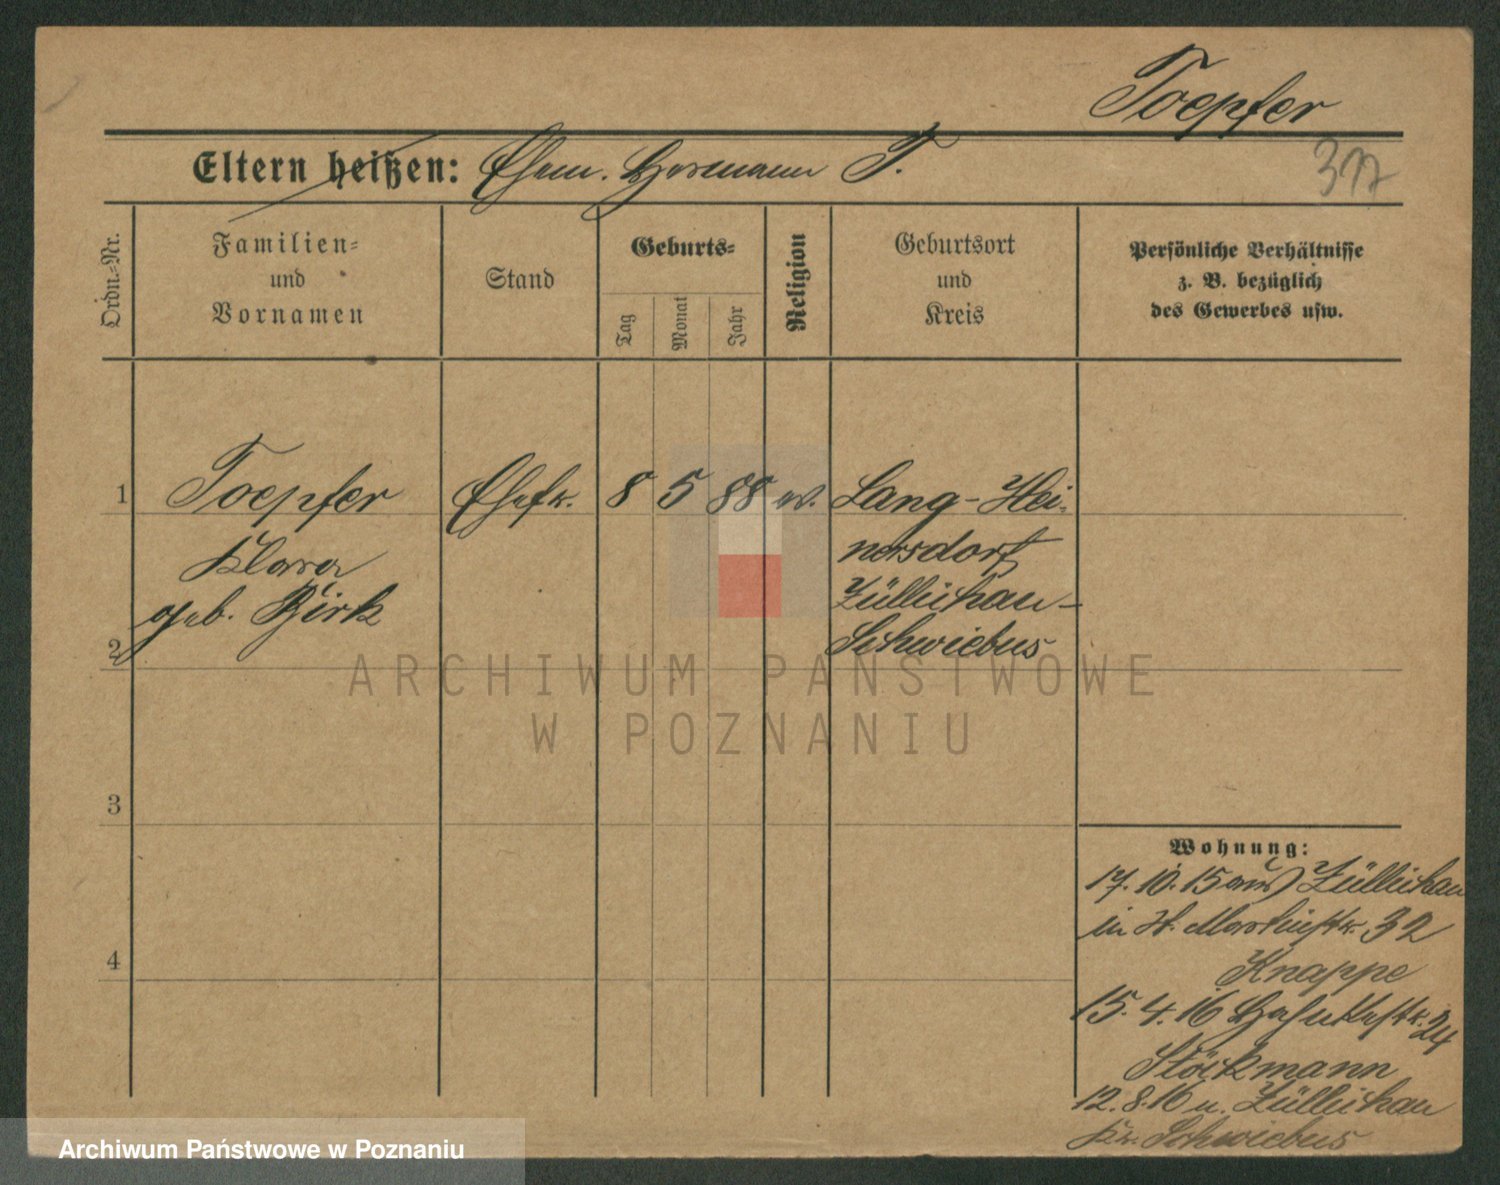 Toepfer
Eltern heißen: Ehem. Hermann T.
377
Ordn.-Nr.
Familien-
und
Vornamen
Stand
Geburts-
Tag
Monat
Jahr
Religion
Geburtsort
und
Kreis
Persönliche Verhältnisse
z. B. bezüglich
des Gewerbes usw.
1 Toepfer Ehefr. 8 5 88 ev. Lang-Hei-
Klara nersdorf
geb. Birk Züllichau-
2 Schwiebus
ARCHIWUM PAŃSTWOWE
W POZNANIU
3
Wohnung:
17.10.15 aus Züllichau
in St. Martinstr. 32
4
Knappe
15.4.16 24
Stöckmann
12.8.16 n. Züllichau
Kr. Schwiebus
Archiwum Państwowe w Poznaniu